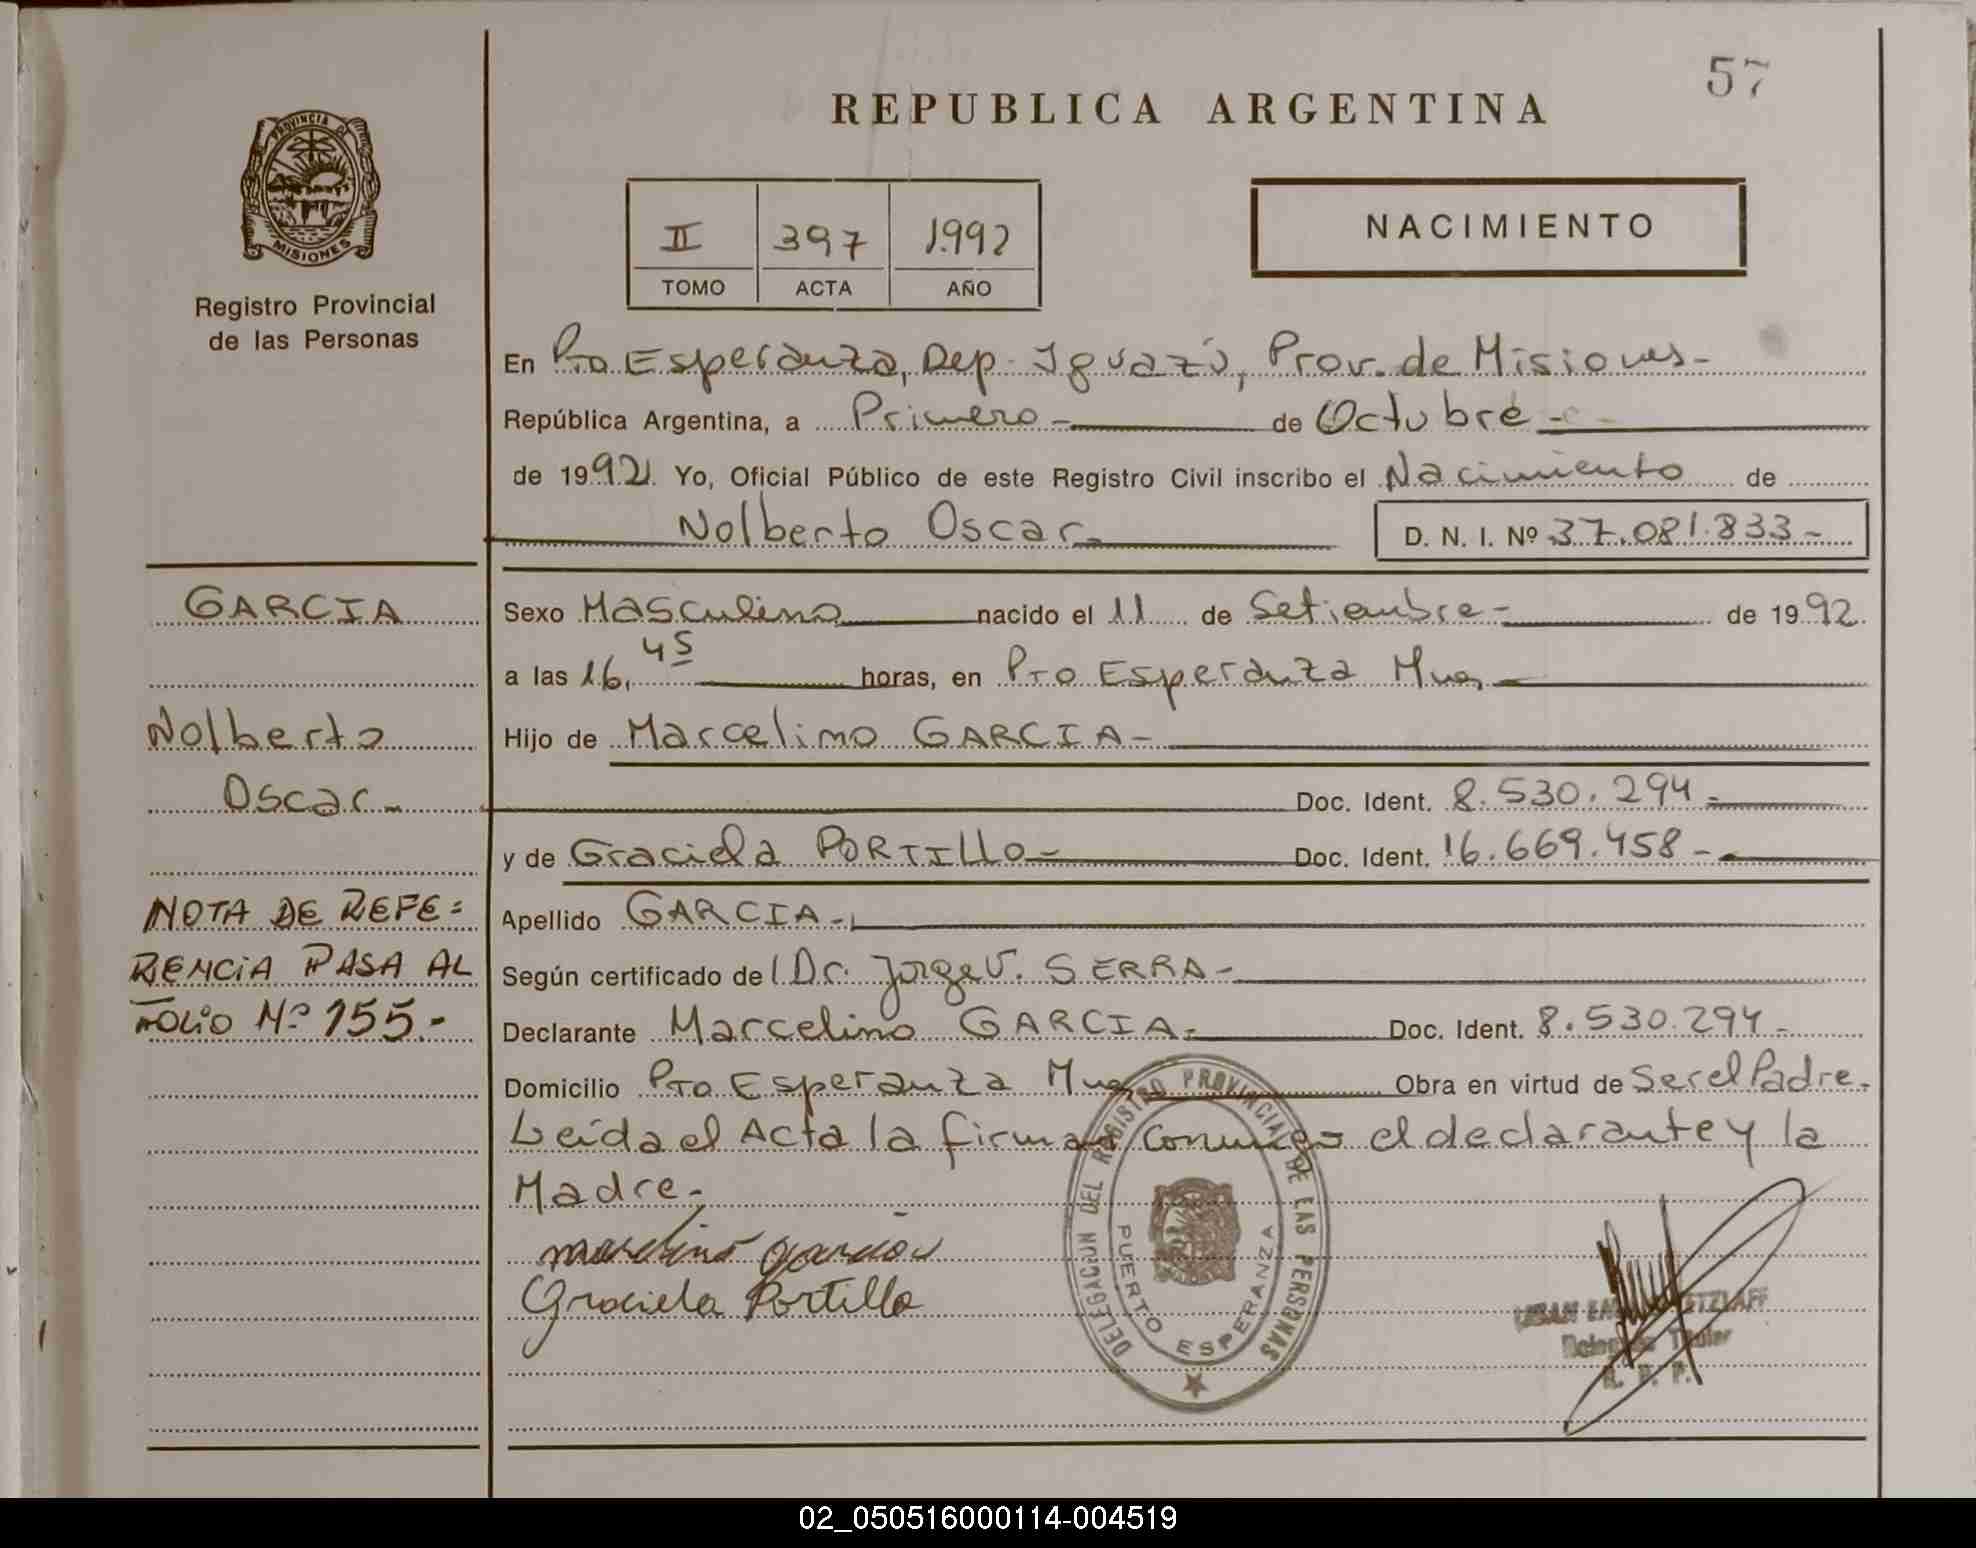 57
REPUBLICA ARGENTINA
PROVINCIA DE
MISIONES
Registro Provincial
de las Personas
II 397 1.992
TOMO ACTA AÑO
NACIMIENTO
En Pto Esperanza, Dep. Iguazú, Prov. de Misiones-
República Argentina, a Primero- de Octubre-
de 1992. Yo, Oficial Público de este Registro Civil inscribo el Nacimiento de
Nolberto Oscar- D. N. I. Nº 37.081.833-
GARCIA
Nolberto
Oscar-
NOTA DE REFE=
RENCIA PASA AL
FOLIO Nº 155.-
Sexo Masculino nacido el 11 de Setiembre- de 1992
a las 16,45 horas, en Pto Esperanza Mnes-
Hijo de Marcelino GARCIA-
Doc. Ident. 8.530.294-
y de Graciela PORTILLO- Doc. Ident. 16.669.458-
Apellido GARCIA-
Según certificado de Dr. Jorge V. SERRA-
Declarante Marcelino GARCIA- Doc. Ident. 8.530.294-
Domicilio Pto Esperanza Mnes Obra en virtud de Ser el Padre-
Leída el Acta la firman conmigo el declarante y la
Madre-
marcelino garcia
Graciela Portillo
DELEGACION DEL REGISTRO PROVINCIAL DE LAS PERSONAS
PUERTO ESPERANZA
Titular
R. P. P.
02_050516000114-004519